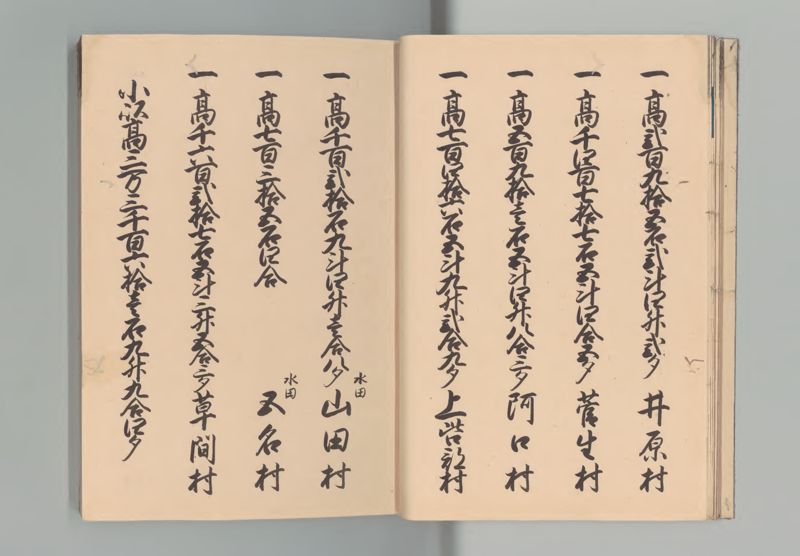 一 高弐百九拾五石弐斗四升弐夕 井原村
一 高千四百七拾七石五斗四合五夕 菅生村
一 高五百九拾壱石五斗四升八合三夕 阿口村
一 高七百四拾六石五斗九升弐合九夕 上呰部村
一 高千百弐拾石九斗四升壱合八夕 水田 山田村
一 高七百三拾五石四合 水田 五名村
一 高千六百弐拾七石五斗三升五合三夕 草間村
小以高三万三千百六拾壱石九升九合四夕